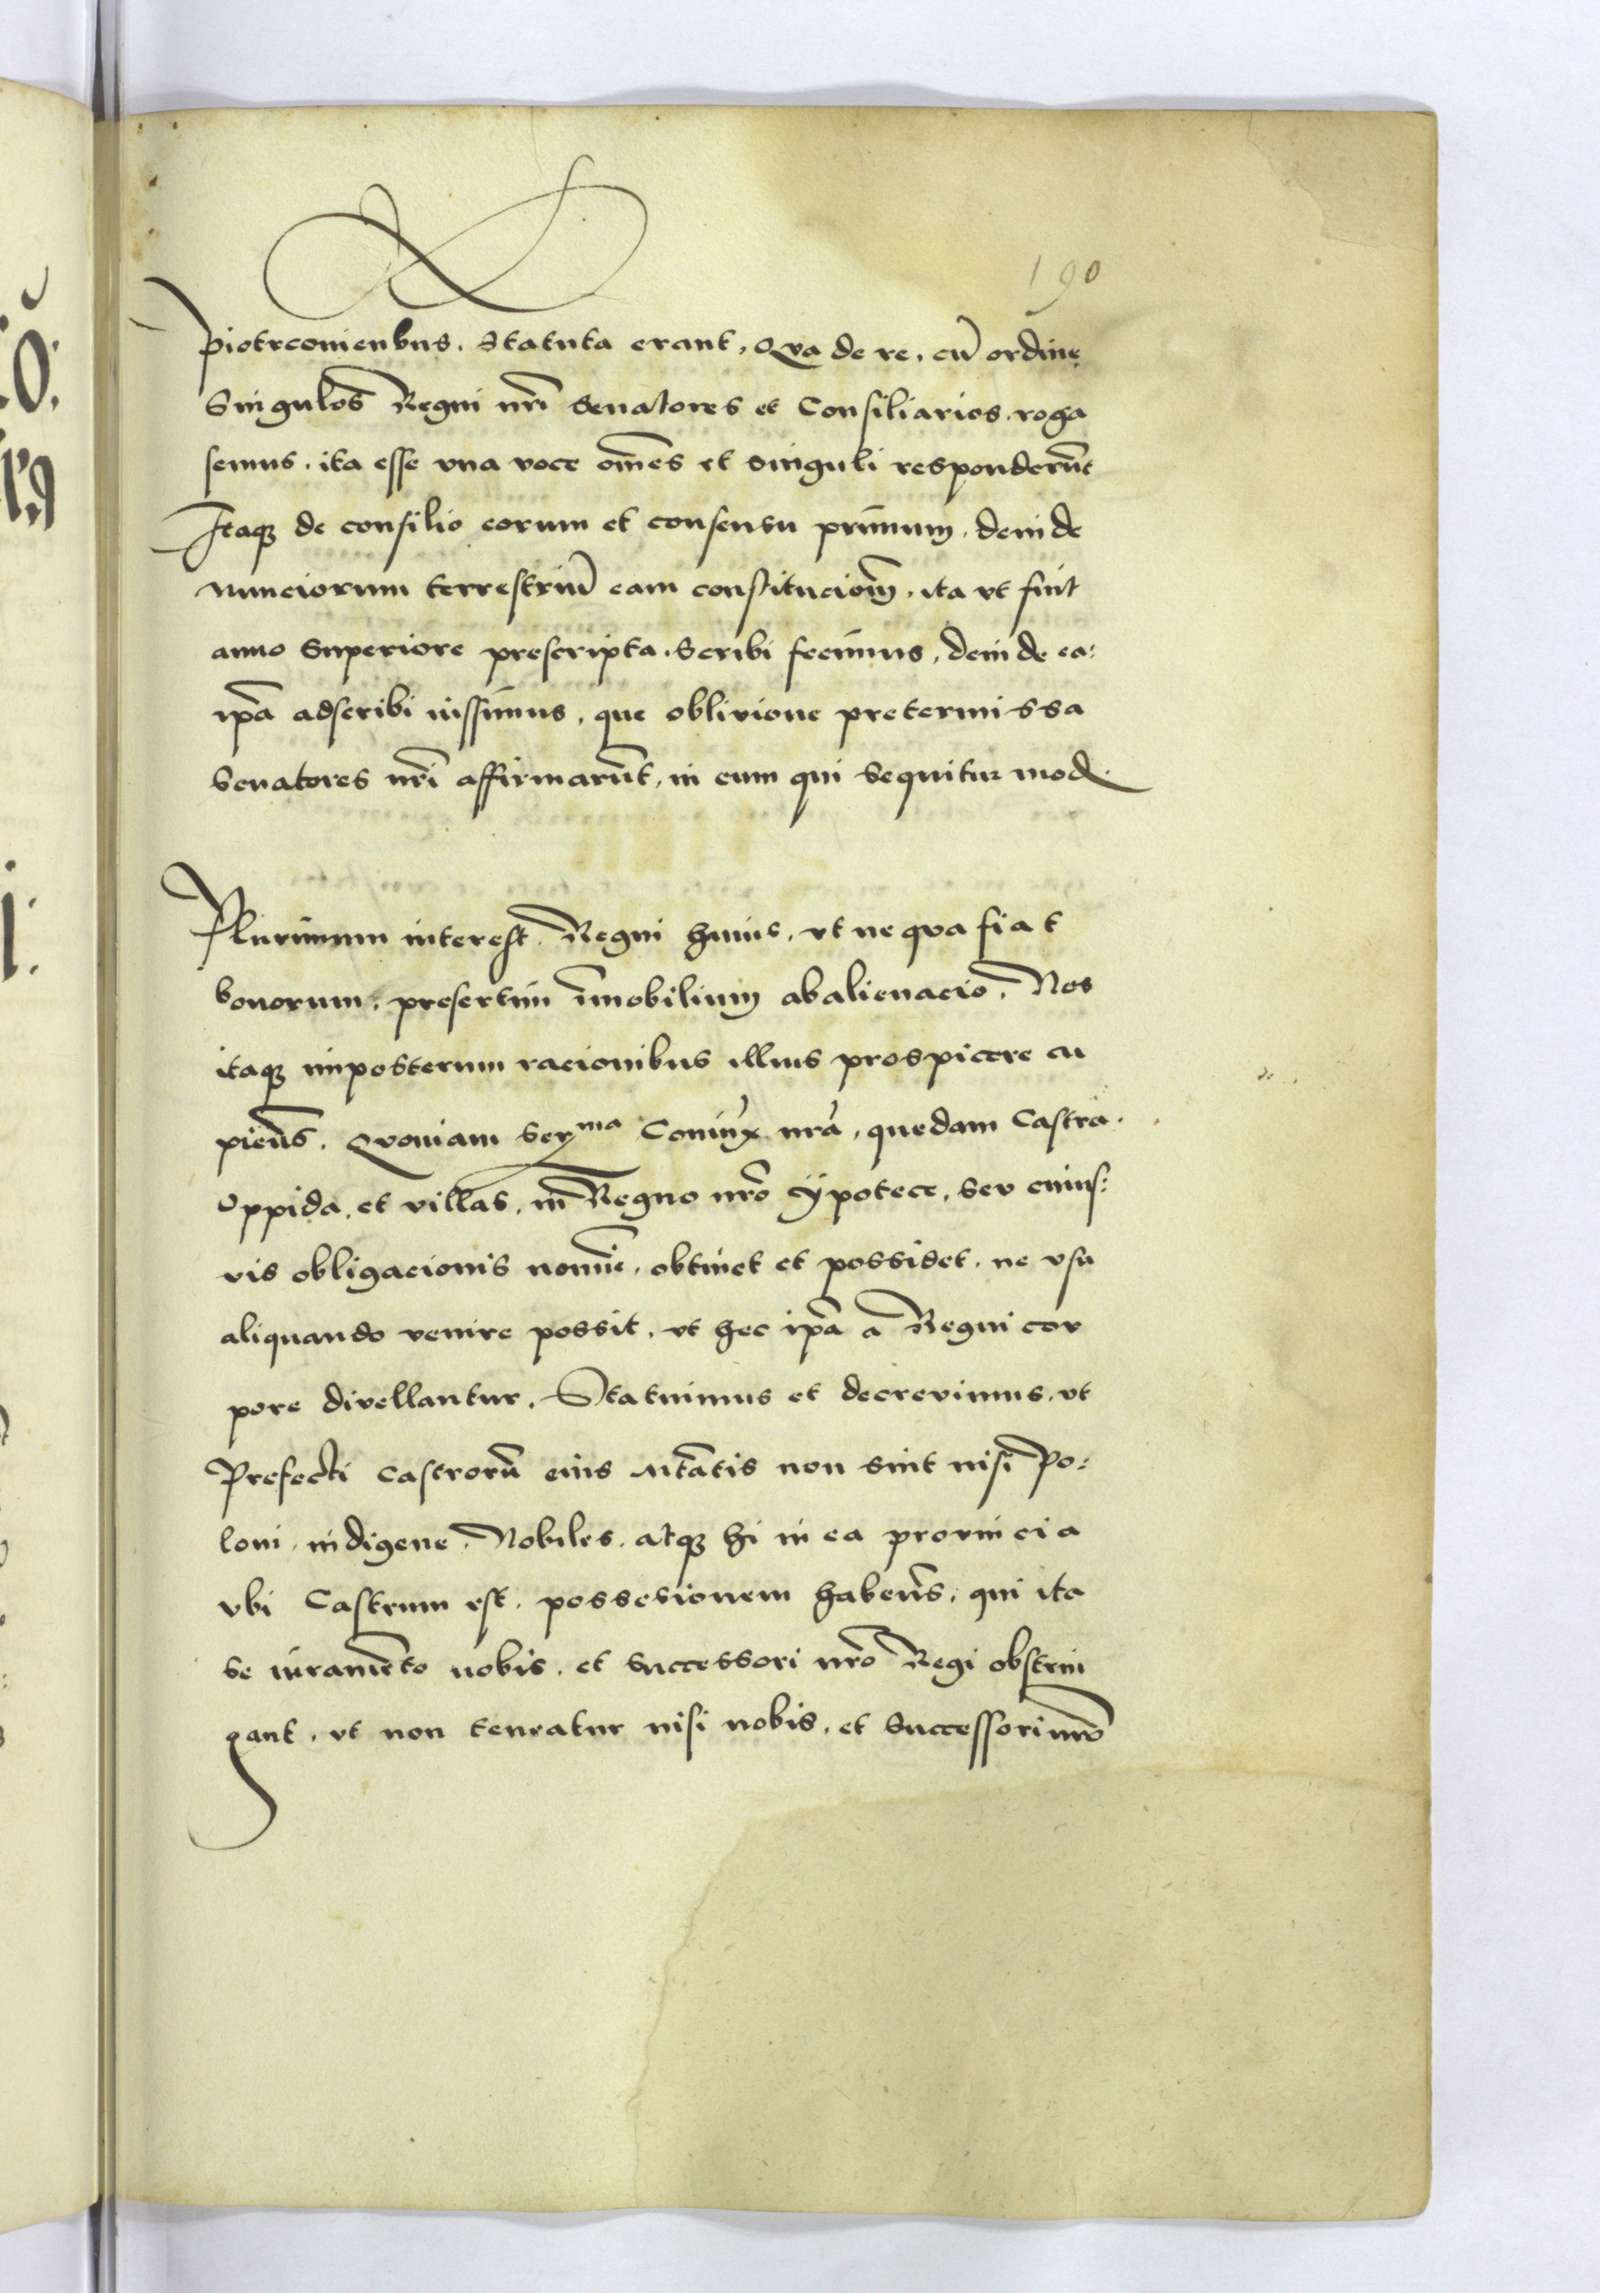 190
piotrconienbus. Statuta erant, Qva de re, cũ ordine
Singulos Regni nr̃i Senatores et Consiliarios roga
semus. ita esse vna voce om̃es et singuli responderũt
Itaqꝫ de consilio eorum et consensu primum. deinde
nunciorum terrestriũ eam constitucioñ. ita vt fuit
anno Superiore prescripta. Scribi fecimus, deinde ea:
ip̃a adscribi iussimus, que oblivione pretermissa
Senatores nr̃i affirmarũt, in eum qui sequitur mod
Plurimum interest. Regni huius, vt ne qva fiat
bonorum, presertim im̃obilium abalienacio. Nos
itaqꝫ imposterum racionibus illius prospicere cu
pieñs. Qvoniam Ser^ma Coniũx nr̃a, quedam Castra.
Oppida, et villas, in Regno nr̃o ÿpotece, sev cuius:
vis obligacionis nomĩe, obtinet et possidet. ne vsu
aliquando venire possit. vt hec ip̃a a Regni cor
pore divellantur. Statuimus et decrevimus. vt
Prefecti castrorũ eius Mtãtis non sint nisi Po:
loni, indigene, Nobiles. atqꝫ hi in ea provincia
vbi Castrum est. possesionem habeñs, qui ita
se iuramẽto nobis. et successori nr̃o Regi obstrin
gant. vt non teneatur nisi nobis, et Successori nr̃o